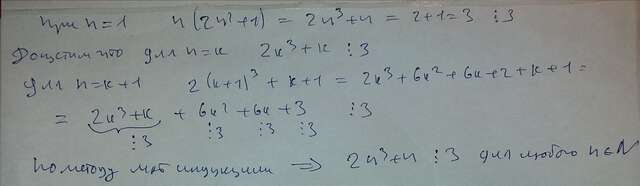 при n=1 n(2n²+1) = 2n³+n = 2+1=3 ⋮3
Допустим что для n=k 2k³+k ⋮3
для n=k+1 2(k+1)³+k+1 = 2k³+6k²+6k+2+k+1 =
= 2k³+k + 6k²+6k+3 ⋮3
⋮3 ⋮3 ⋮3 ⋮3
по методу мат индукции ⇒ 2n³+n ⋮3 для любого n∈N